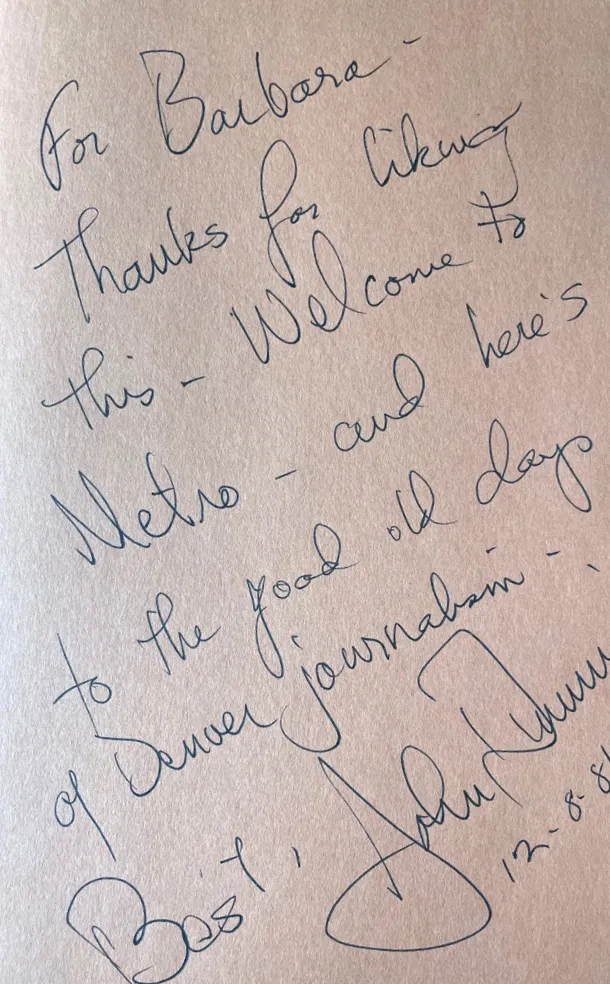 For Barbara -
Thanks for liking
this - Welcome to
Metro - and here's
to the good old days
of Denver journalism -
Best, John
12-8-8